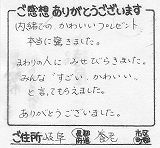 ご感想 ありがとうございます
内緒での かわいい プレゼント
本当に驚きました。
まわりの人に みせびらきました。
みんな "すごい、かわいい、
と言ってもらえました。
ありがとうございました。
ご住所 岐阜 都道府県 市区町村